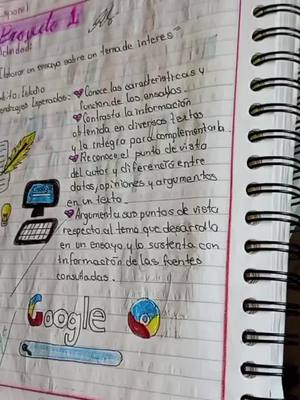 Español
Proyecto 1
Actividad:
Elaborar un ensayo sobre un tema de interés
Ámbito: Estudio
Aprendizajes Esperados: Conoce las características y
función de los ensayos.
Contrasta la información
obtenida en diversos textos
y la integra para complementarla
Reconoce el punto de vista
del autor y diferencia entre
datos, opiniones y argumentos
en un texto.
Argumenta sus puntos de vista
respecto al tema que desarrolla
en un ensayo y lo sustenta con
información de las fuentes
consultadas.
Google